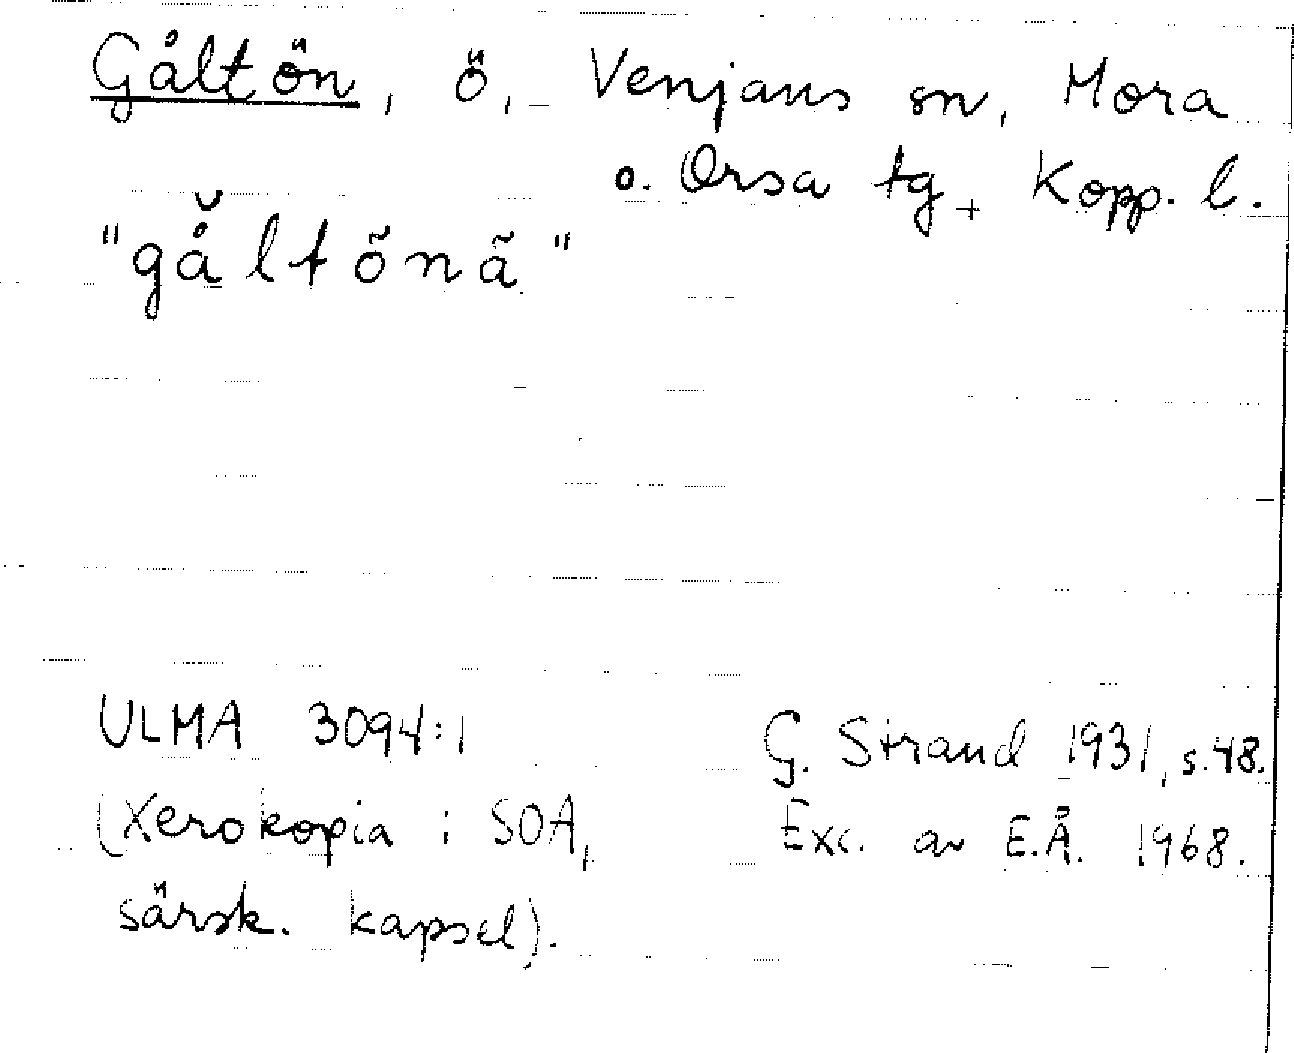 Gåltön, ö, Venjans sn, Mora
o. Orsa tg, Kopp. l.
"gå̆ltõnã"
ULMA 3094:1
(Xerokopia i SOA,
särsk. kapsel).
G. Strand 1931, s.48.
Exc. av E.Å. 1968.